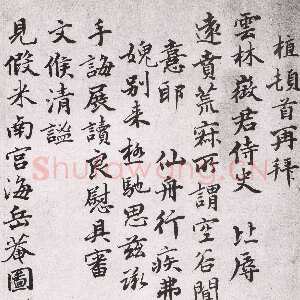 植頓首再拜
雲林徵君侍史 比辱
遠賁荒寂所謂空谷聞
 仙舟行疾弗
媿别来極馳思兹承
手誨展讀更慰具審
文候清謐
見假米南宮海岳菴圖